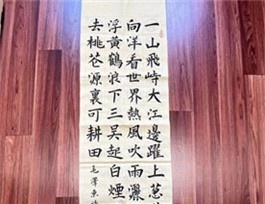 一山飛峙大江邊躍上葱
向洋看世界熱風吹雨灑
浮黃鶴浪下三吴起白煙
去桃花源裏可耕田
毛澤東